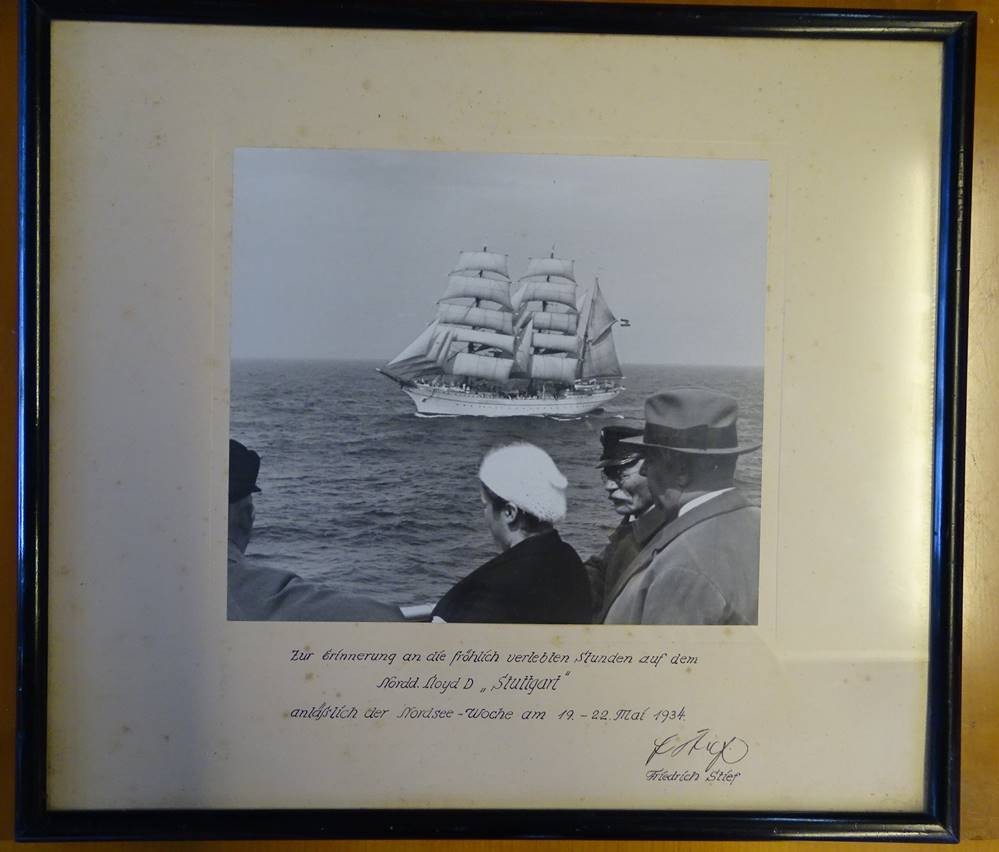 Zur Erinnerung an die fröhlich verlebten Stunden auf dem
Nordd. Lloyd D „Stuttgart“
anläßlich der Nordsee-Woche am 19.-22. Mai 1934.
F Stief.
Friedrich Stief